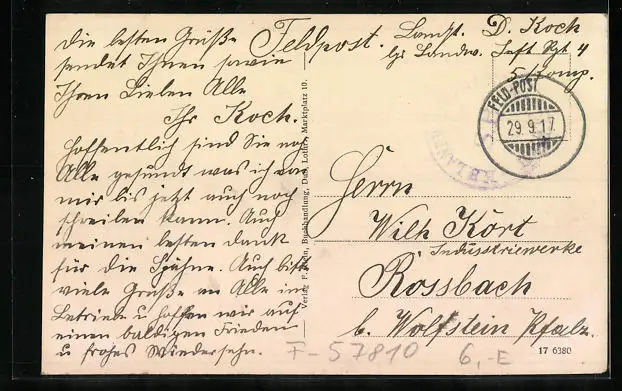 Die besten Grüße
sendet Ihnen sowie
Ihren Lieben Alle
Ihr Koch.
Hoffentlich sind Sie noch
Alle gesund was ich von
mir bis jetzt auch noch
schreiben kann. Auch
meinen besten dank
für die Spähne. Auch bitte
viele Grüße an Alle im
Betriebe u hoffen wir auf
einen baldigen Frieden
u frohes Wiedersehn.
Feldpost.
Landst. D. Koch
Landw. Inft Rgt 4
5 Komp.
FELD-POST
29.9.17.
Herrn
Wilh Kört
Industriewerke
Rossbach
b. Wolfstein Pfalz.
Buchhandlung, Marktplatz 10.
F-57810
6,-E
17 6380